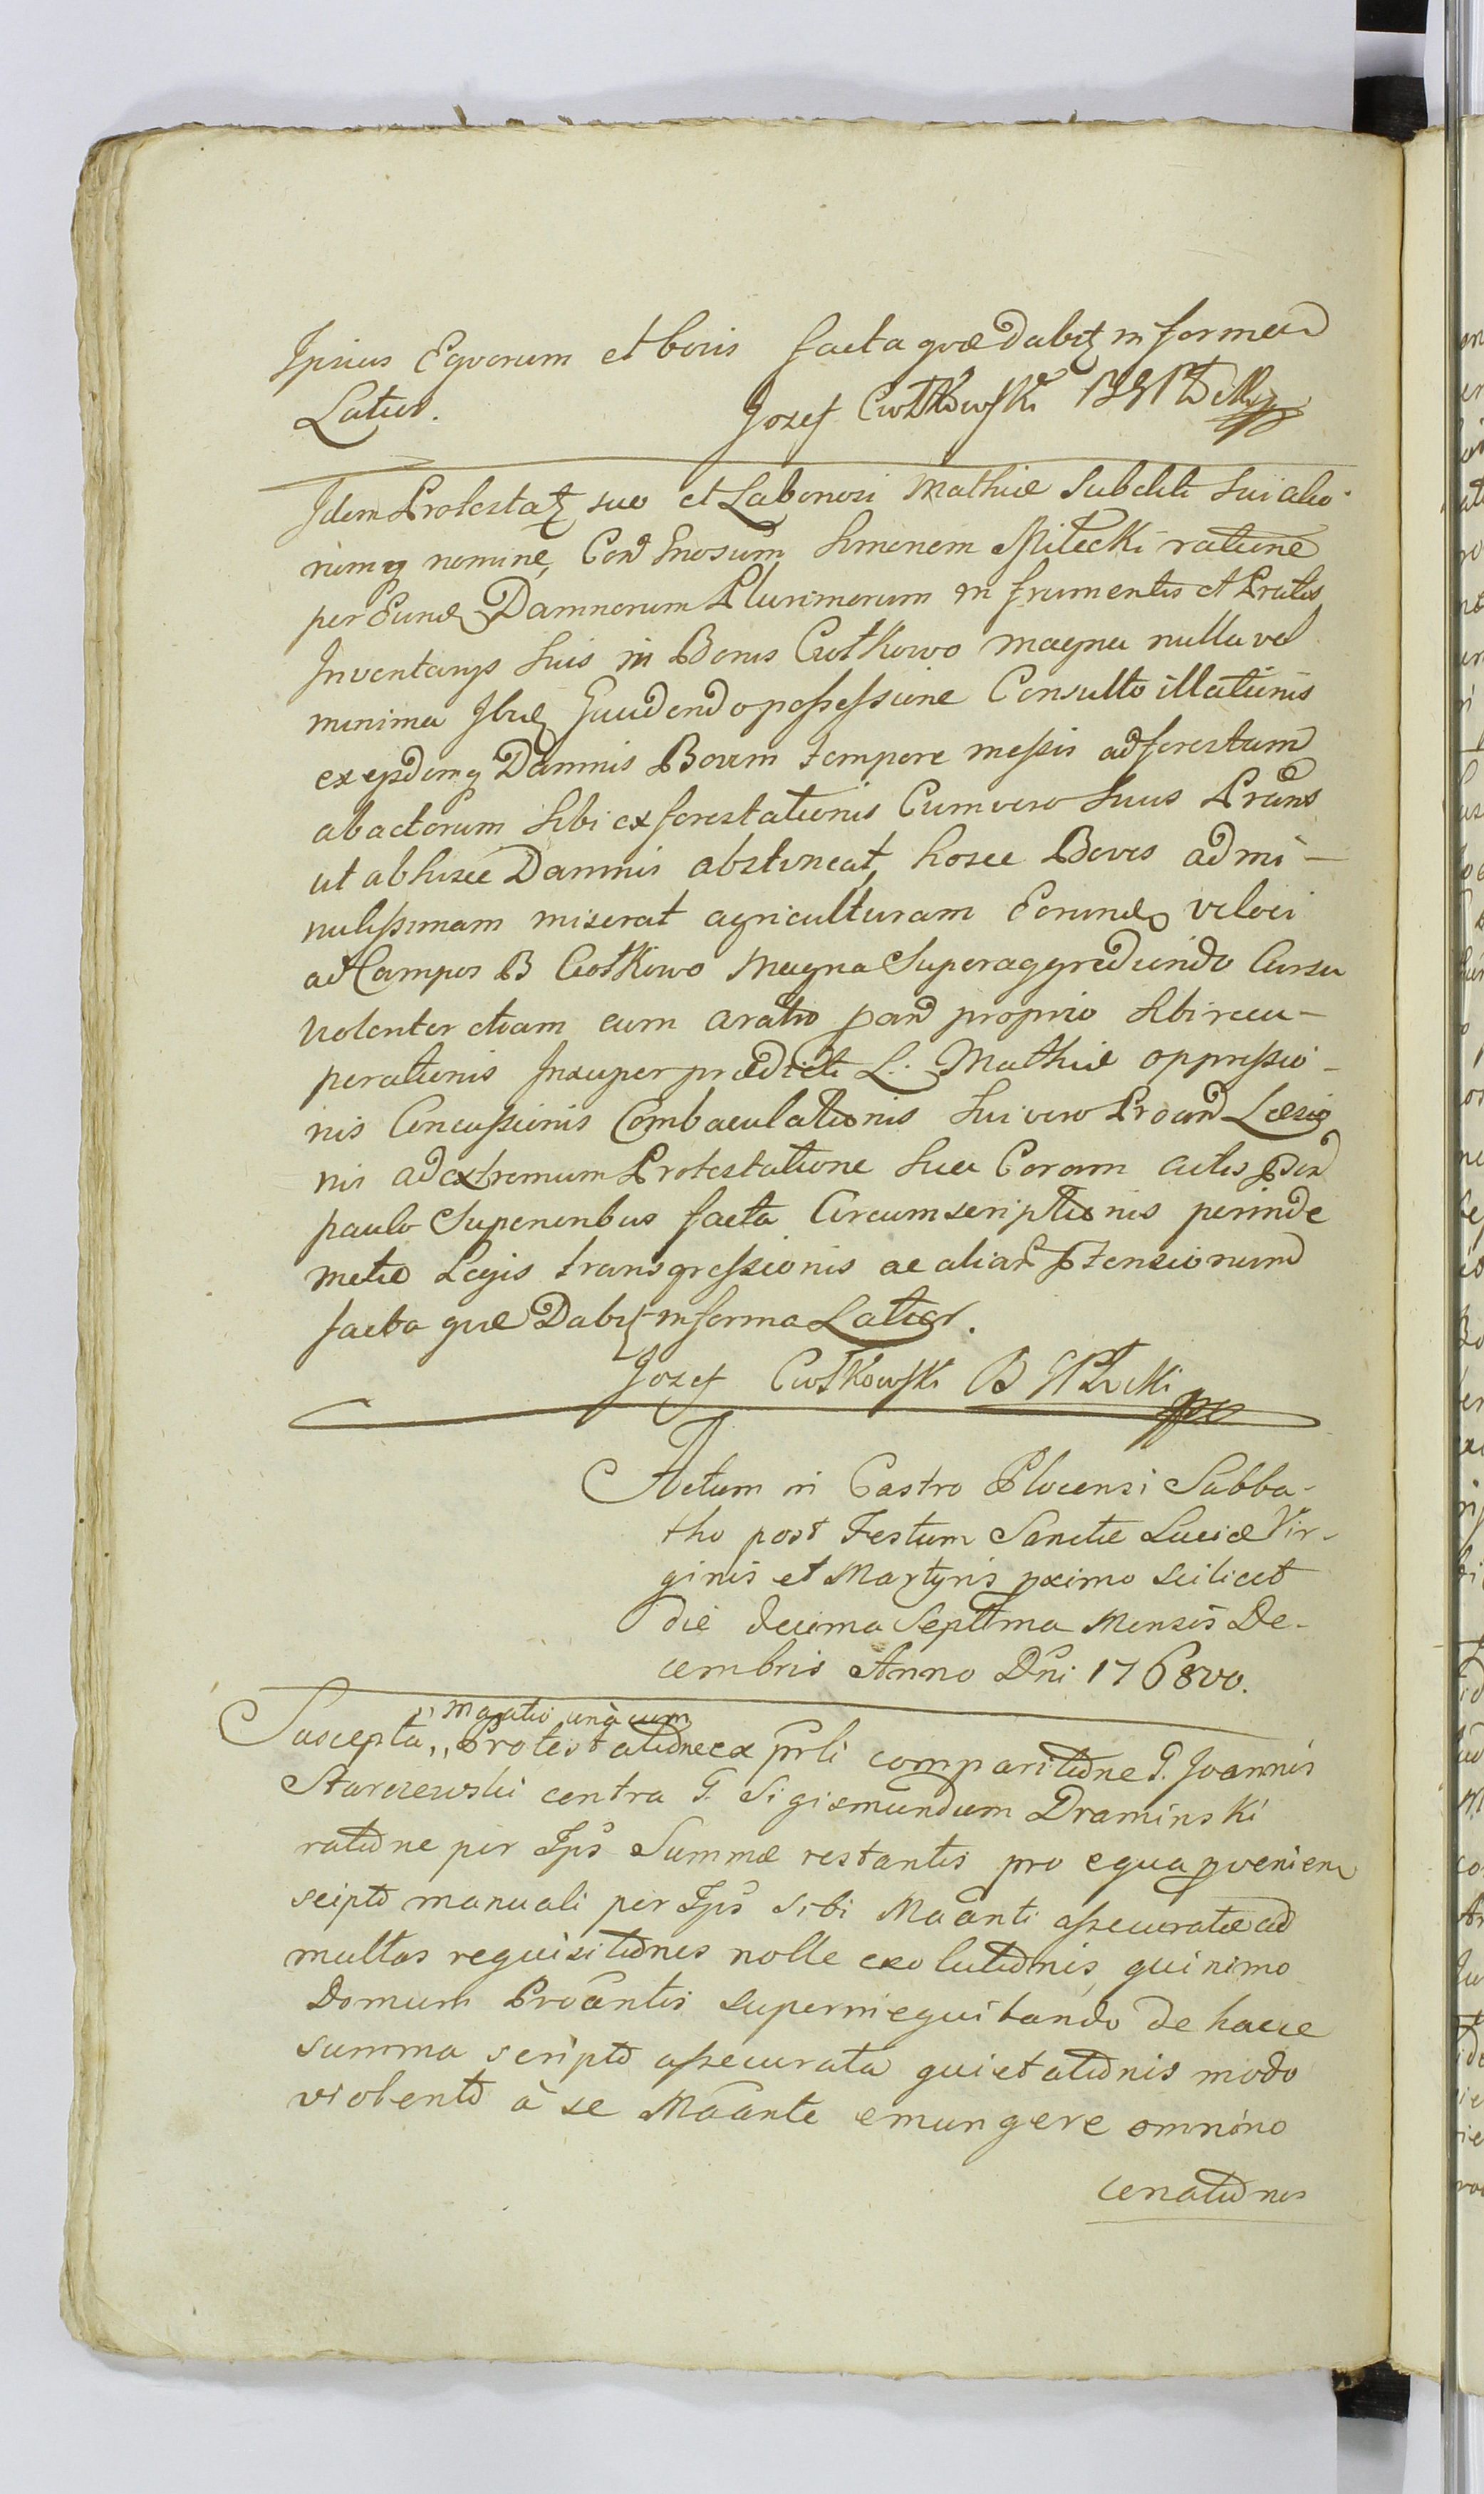 Ipsius Eqvorum et bovis facta qvæ Dabitꝫ in forma
Latior.
Jozef Ciołkowski
Idem Protestatꝫ suo et Laboriosi Mathiæ Subditi Sui alio-
nomine, Con͠ Gnosum Simonem Pilecki ratione
per Eund Damnorum Plurimorum in frumentis et Pratis
Inventarys Suis in Bonis Ciołkowo magna nulla vel
minima Gaudendo possessione Consulto illationis
ex ejsdemq Damnis Bovum tempore messis ad forestum
abactorum Sibi exforestationis Cum vero Suus
ut abhisce Damnis abstineat, hosce Boves ad mi-
nutissimam miserat agriculturam Eorund veloci
ad Campos B Ciołkowo Magna Superaggrediundo Cursu
violenter etiam cum aratro proprio Sibi recu-
perationis Insuper prædicti L. Mathiæ oppressio-
nis Concussionis Combaculationis Sui vero Læsio
nis ad extremum Protestatione Sua Coram actis
paulo Superioribus facta Circumscriptionis perinde
metæ Legis transgressionis ac aliar ꝑtensionum
facta qvæ Dabitꝫ in forma Latior.
Jozef Ciołkowski
Actum in Castro Plocensi Sabba-
tho post Festum Sanctæ Luciæ Vir-
ginis et Martyris pximo scilicet
die decima Septima Mensis De-
cembris Anno Dni 1768vo.
Mattio unà cum
Suscepta,, Protestatione ex prli comparitione G. Joannis
Starczewski contra G. Sigismundum Dramiński
ratione per Ips Summæ restantis pro equa proenien
scripto manuali per Ips sibi Maanti assecuratæ ad
multas requisitiones nolle exolutionis, quinimo
Domum Proantis superinequitando de hacce
summa scripto assecurata quietationis modo
violento à se Maante emungere omnino
conationis